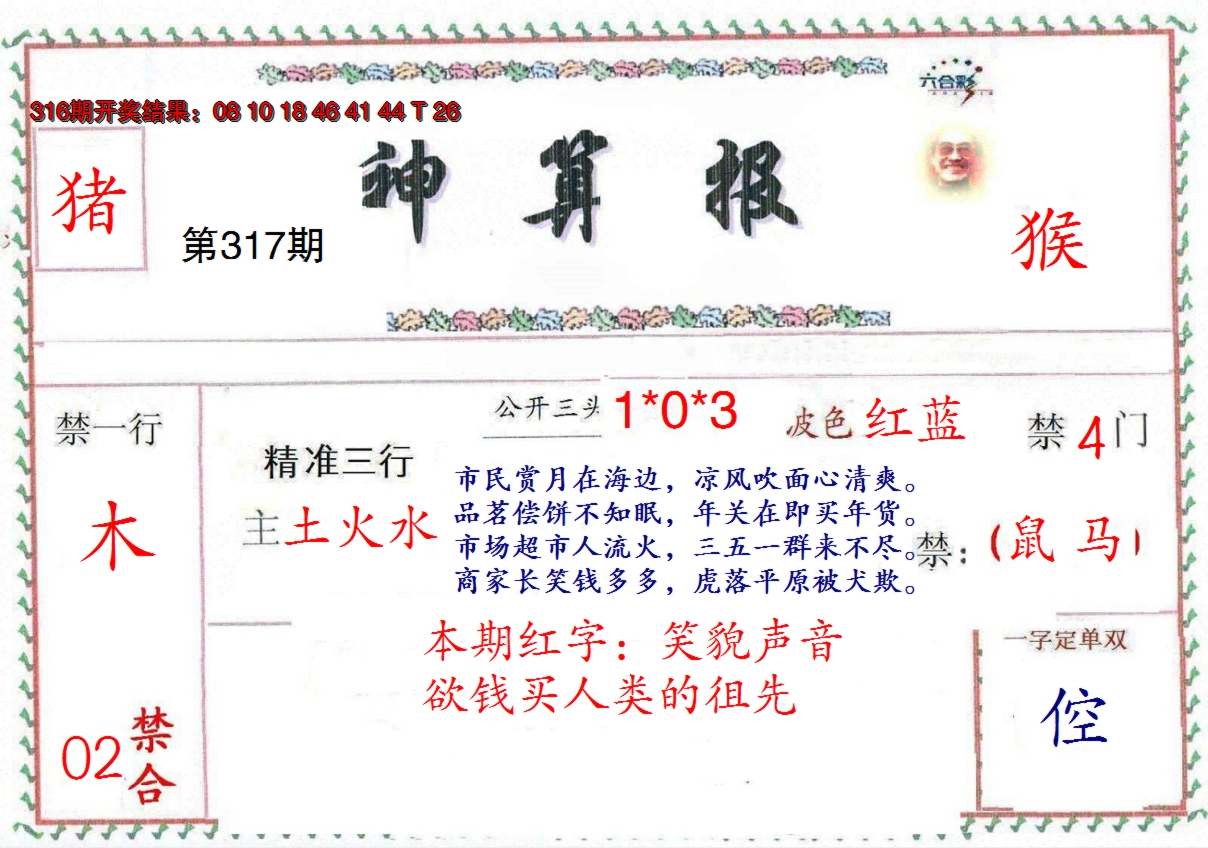 六合彩
316期开奖结果：08 10 18 46 41 44 T 26
神算报
猪
第317期
猴
公开三头 1*0*3
波色 红蓝
禁一行
禁4门
精准三行
市民赏月在海边，凉风吹面心清爽。
品茗偿饼不知眠，年关在即买年货。
主土火水
木
市场超市人流火，三五一群来不尽。
禁：（鼠 马）
商家长笑钱多多，虎落平原被犬欺。
本期红字：笑貌声音
一字定单双
欲钱买人类的徂先
倥
02
禁合